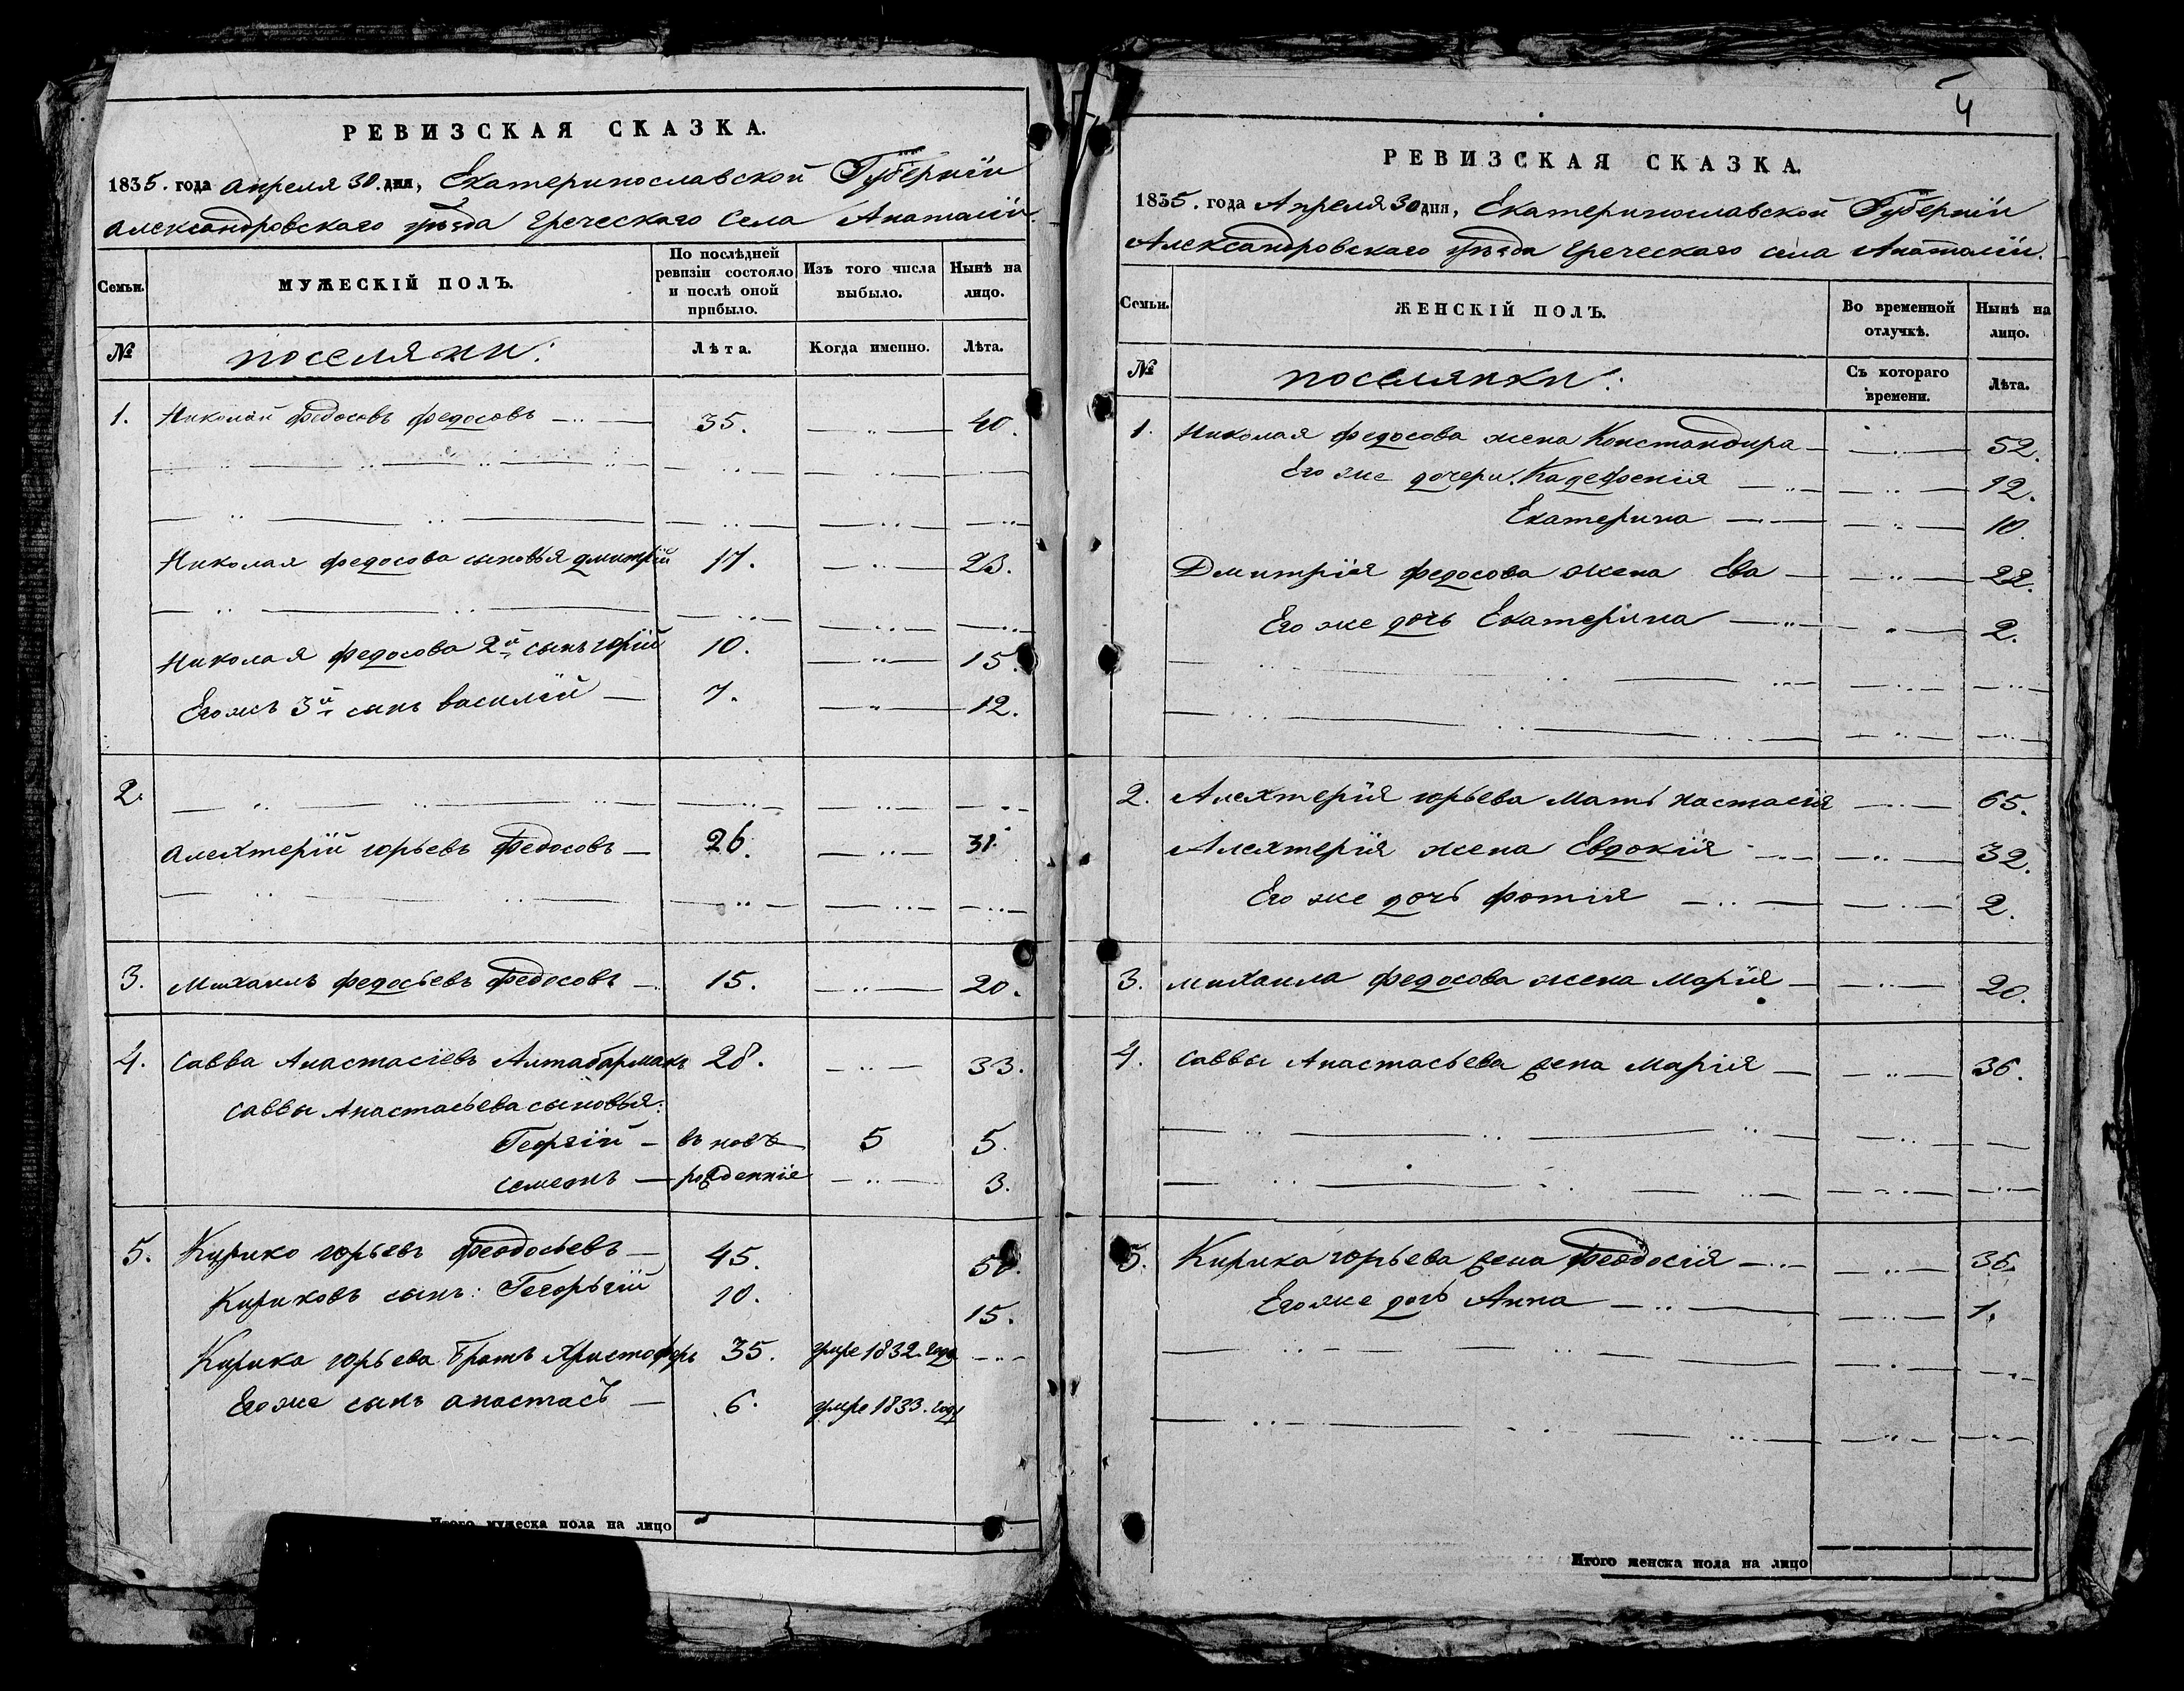 РЕВИЗСКАЯ СКАЗКА.
1835. года апреля 30. дня, Екатеринославской Губернїи
александровскаго уѣзда Греческаго Села Анатолїи.
Семьи.
МУЖЕСКІЙ ПОЛЪ.
По послѣдней ревизіи состояло и послѣ оной прибыло.
Изъ того числа выбыло.
Нынѣ на лицо.
№
поселяни:
Лѣта.
Когда именно.
Лѣта.
1. Николай Федосовъ федосовъ 35. 40.
Николая федосова сыновья дмитрїй 17. 23.
Николая федосова 2й сынъ юрїй 10. 15.
Его жъ 3й сынъ василїй 7. 12.
2.
алехтерїй юрьевъ Федосовъ 26. 31.
3. Михаилъ федосьевъ Федосовъ 15. 20.
4. савва Анастасіевъ Алтабармакъ 28. 33.
саввы Анастасьева сыновья:
Георгїй въ новъ 5 5.
семеонъ рожденніе 3.
5. Кирико юрьевъ Феодосьевъ 45. 50.
Кириковъ сынъ: Георьгїй 10. 15.
Кирика юрьева братъ Христофоръ 35. умре 1832. года
Его же сынъ анастасъ 6. умре 1833. году
Итого мужеска пола на лицо
4
РЕВИЗСКАЯ СКАЗКА.
1835. года Апреля 30 дня, Екатеринославской Губернїи
Александровскаго уѣзда Греческаго села Анатолїи.
Семьи.
ЖЕНСКІЙ ПОЛЪ.
Во временной отлучкѣ.
Нынѣ на лицо.
№
поселянки:
Съ котораго времени.
Лѣта.
1. Николая федосова жена Константира 52.
Его же дочери: Кадефенія 12.
Екатерина 10.
Дмитрїя федосова жена Ева 22.
Его же дочь Екатерина 2.
2. Алехтерїя юрьева Мать настасія 65.
Алехтерїя жена Евдокія 32.
Его же дочь фотія 2.
3. михаила федосова жена Марїя 20.
4. саввы Анастасьева жена Марія 36.
5. Кирика юрьева жена Феодосія 35.
Его же дочь Анна 1.
Итого женска пола на лицо